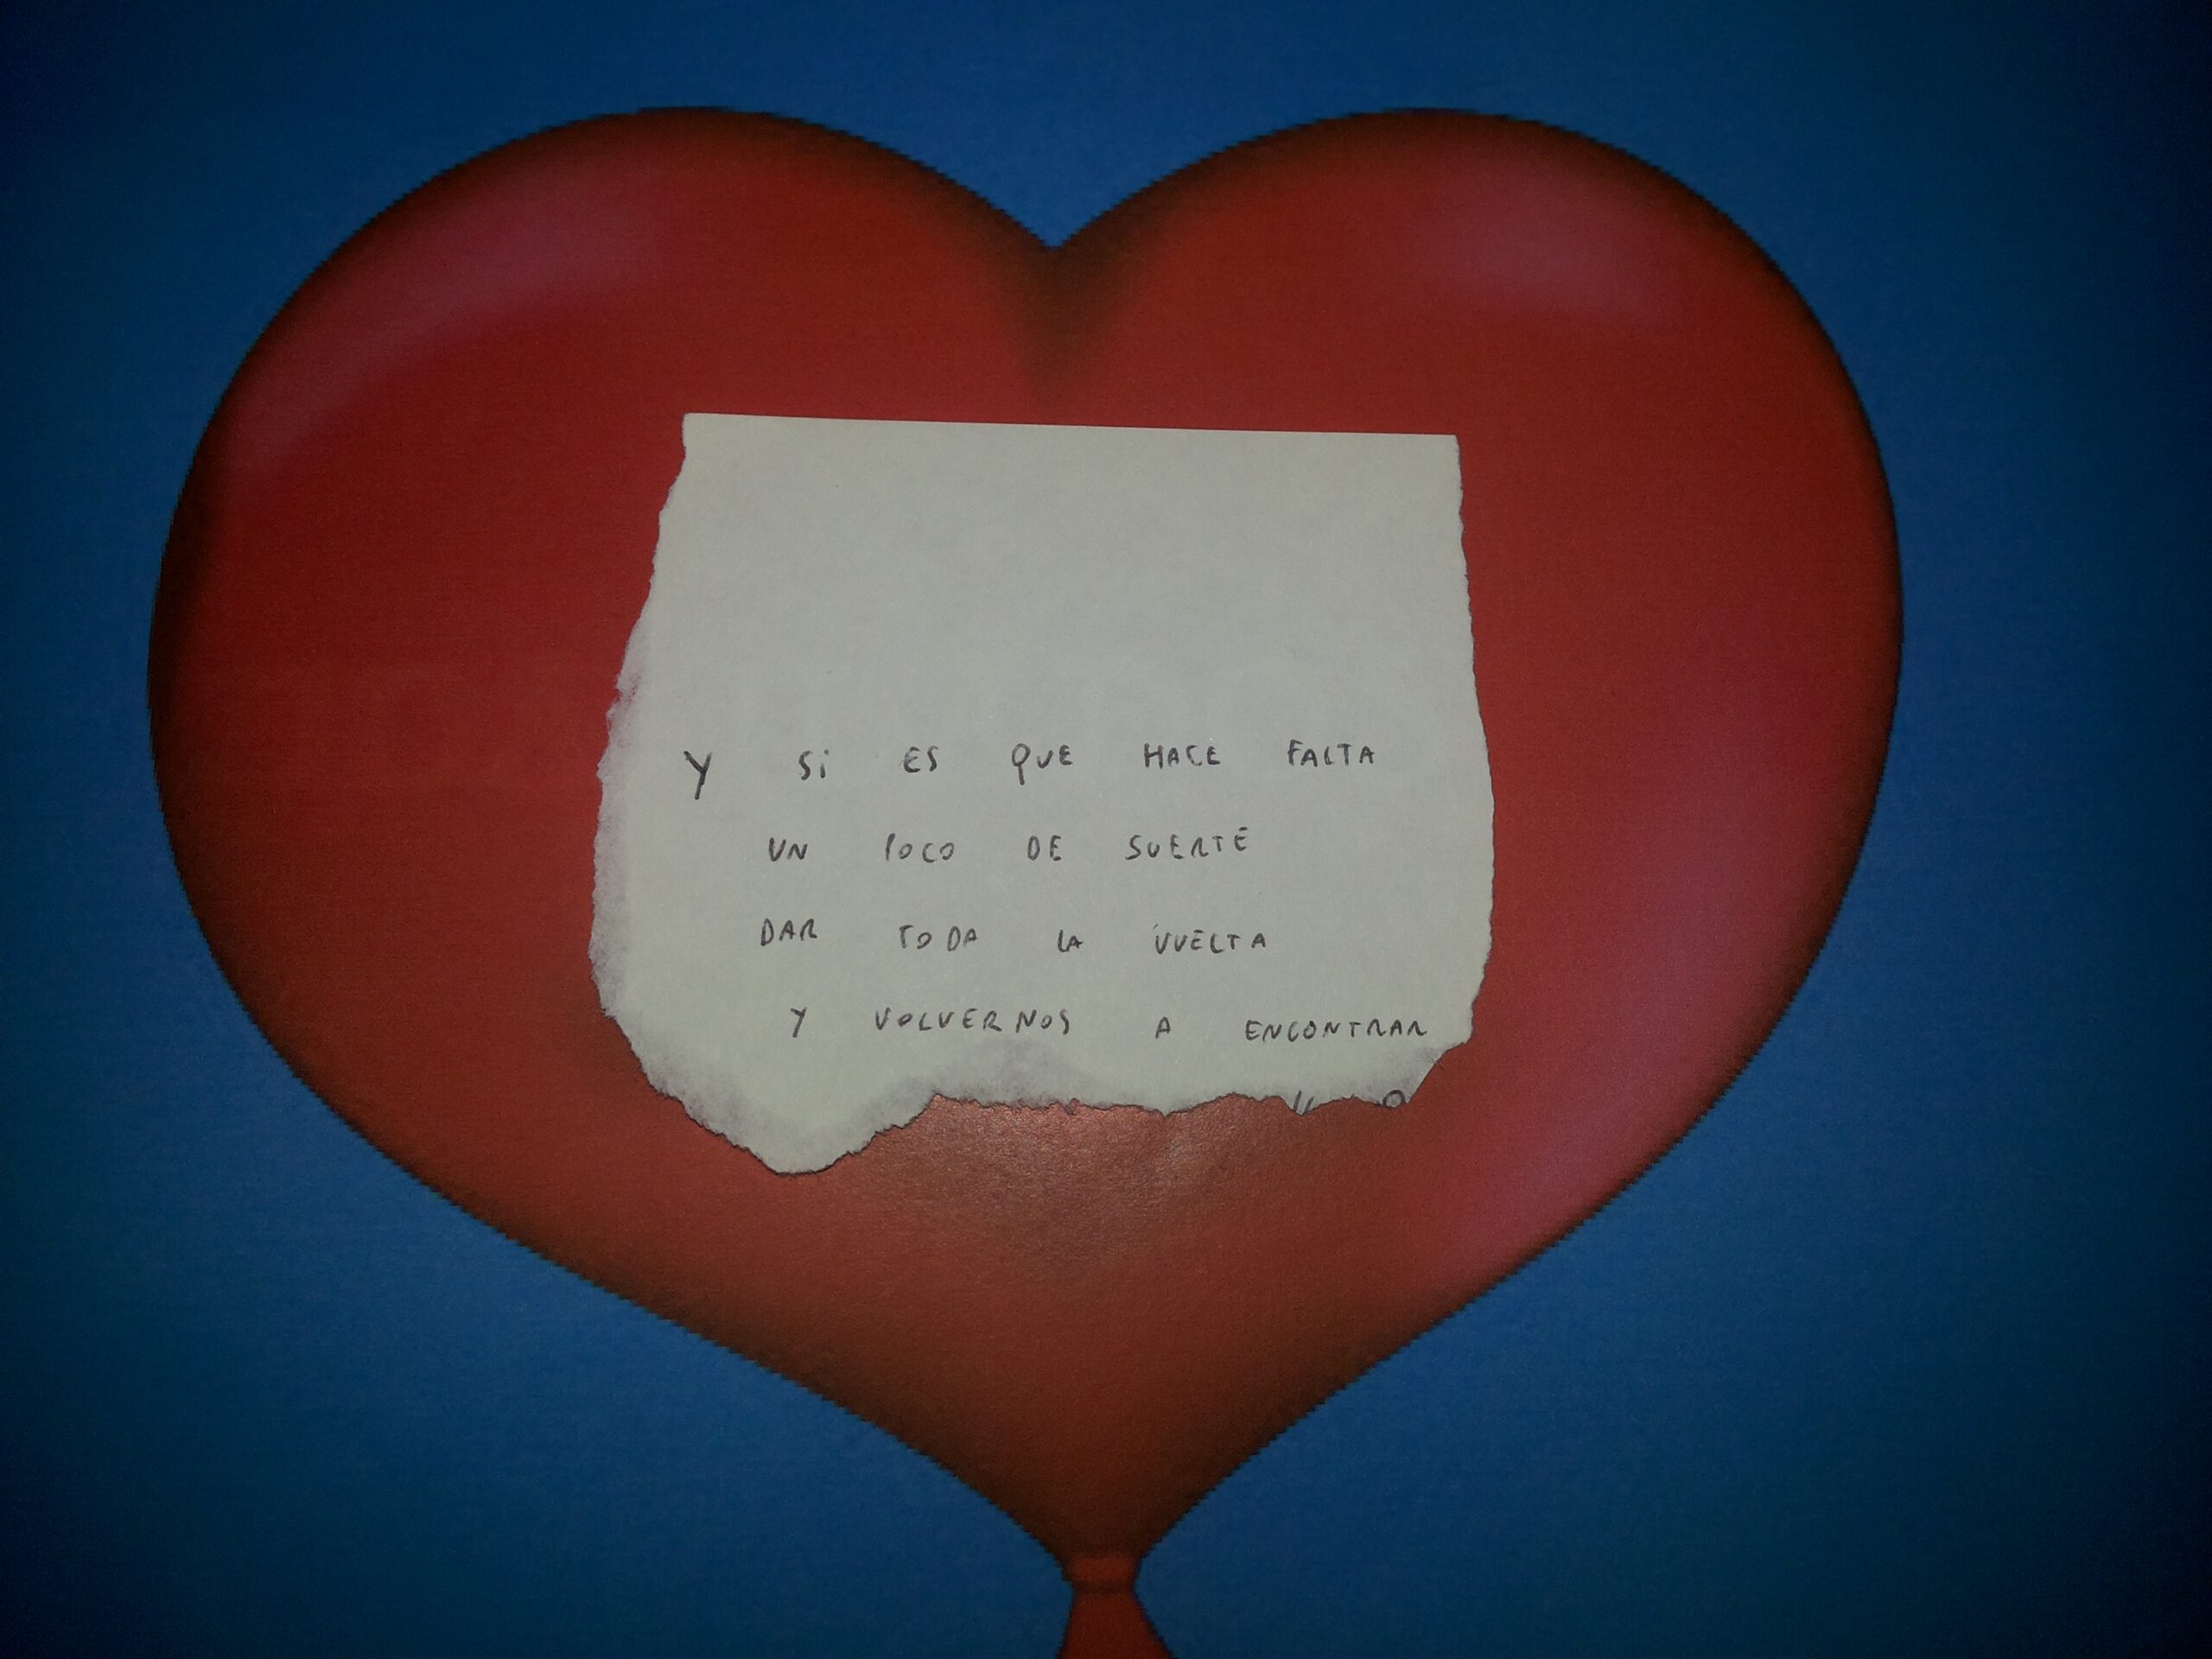 Y Si ES QUE HACE FALTA
UN POCO DE SUERTE
DAR TODA LA VUELTA
Y VOLVERNOS A ENCONTRAR